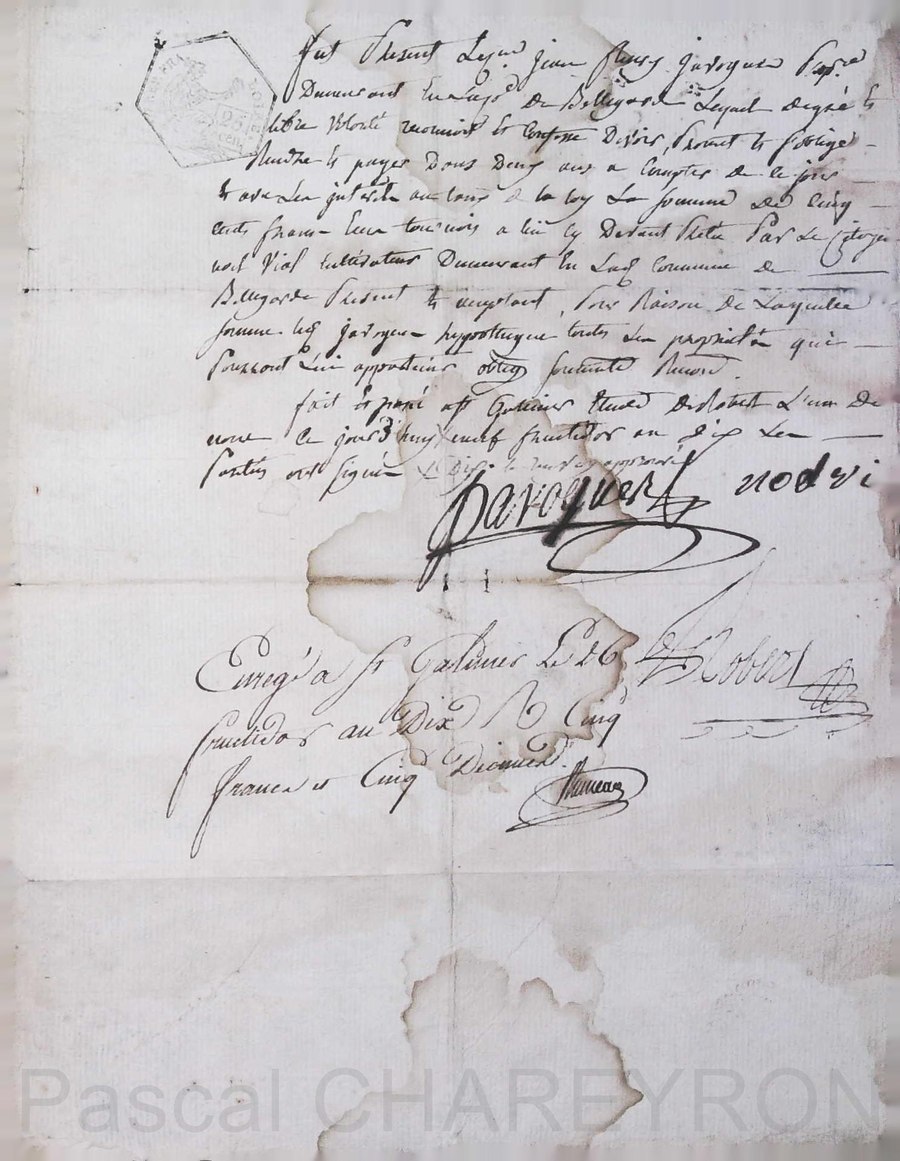 fut Présent Le Cen Jean fleury Javogues Prop.re
Demeurant En La Co.e de Bellegarde Lequel de gré et
libre Volonté reconnoit et Confesse Devoir, Promet et s'oblige
Rendre et payer Dans Deux ans a Compter de ce jour
et avec Les interets au taux de la loy La somme de Cinq
cents francs tournois a lui cy Devant Pretée Par Le Citoyen
noel Vial Cultivateur Demeurant En Lad. Commune de
Bellegarde Present et acceptant, Pour Raison de Laquelle
somme led. Javogues hypotheque toutes Les proprietés qui
Pourront Lui appartenir
fait et passé a St Galmier Etude de Robert L'un de
nous Ce jourd'huy neuf fructidor an dix Les
Parties ont signé
Javogues noel vi
Robert
Enregé a St Galmier Le 26
fructidor an Dix R Cinq
francs et Cinq Decimes.
25
Pascal CHAREYRON